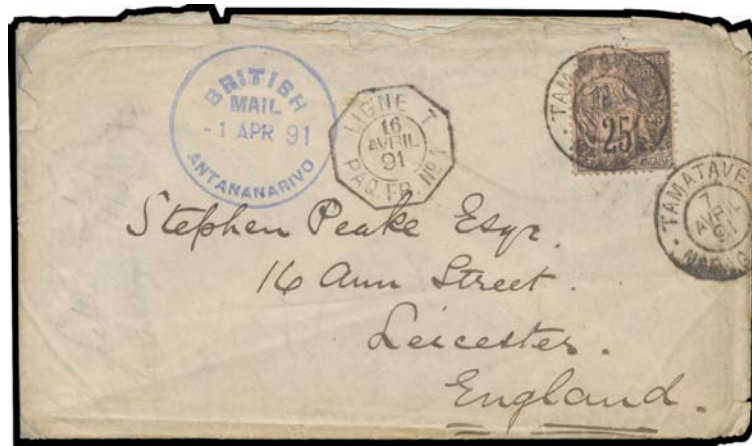 BRITISH
MAIL
- 1 APR 91
ANTANANARIVO
LIGNE T
16
AVRIL
91
PAQ. FR. Nº 1
TAMATAVE
25
TAMATAVE
7
AVRIL
91
Stephen Peake Esqr.
16 Ann Street.
Leicester.
England.